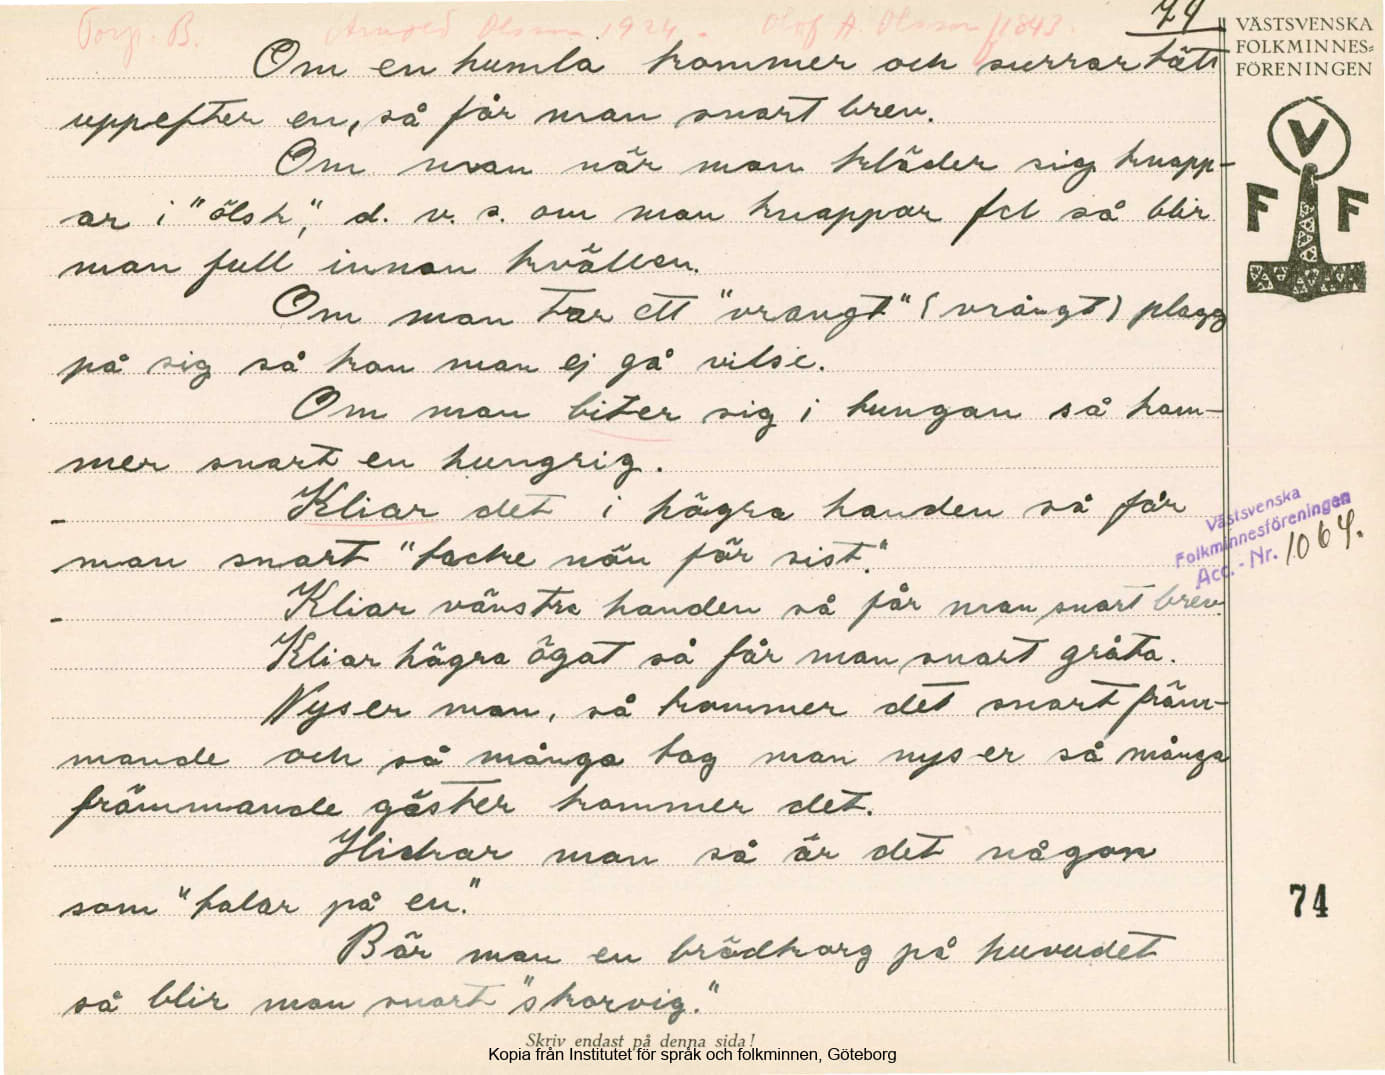 Torp. B. Arnold Olsson 1924. Olof A. Olsson f/1843.
74
VÄSTSVENSKA
FOLKMINNES=
FÖRENINGEN
V
F F
Om en humla kommer och surrar tätt
uppefter en, så får man snart brev.
Om man när man kläder sig knapp-
ar i "ölsk", d. v. s. om man knappar fel så blir
man full innan kvällen.
Om man tar ett "vrangt" (vrångt) plagg
på sig så kan man ej gå vilse.
Om man biter sig i tungan så kom-
mer snart en hungrig.
Kliar det i högra handen så får
man snart "tacke nån får sist."
Kliar vänstra handen så får man snart brev.
Kliar högra ögat så får man snart gråta.
Nyser man, så kommer det snart främ-
mande och så många tag man nyser så många
främmande gäster kommer det.
Hickar man så är det någon
som "talar på en."
Bär man en brödkorg på huvudet
så blir man snart "skorvig."
Västsvenska
Folkminnesföreningen
Acc. - Nr. 1064.
74
Skriv endast på denna sida!
Kopia från Institutet för språk och folkminnen, Göteborg